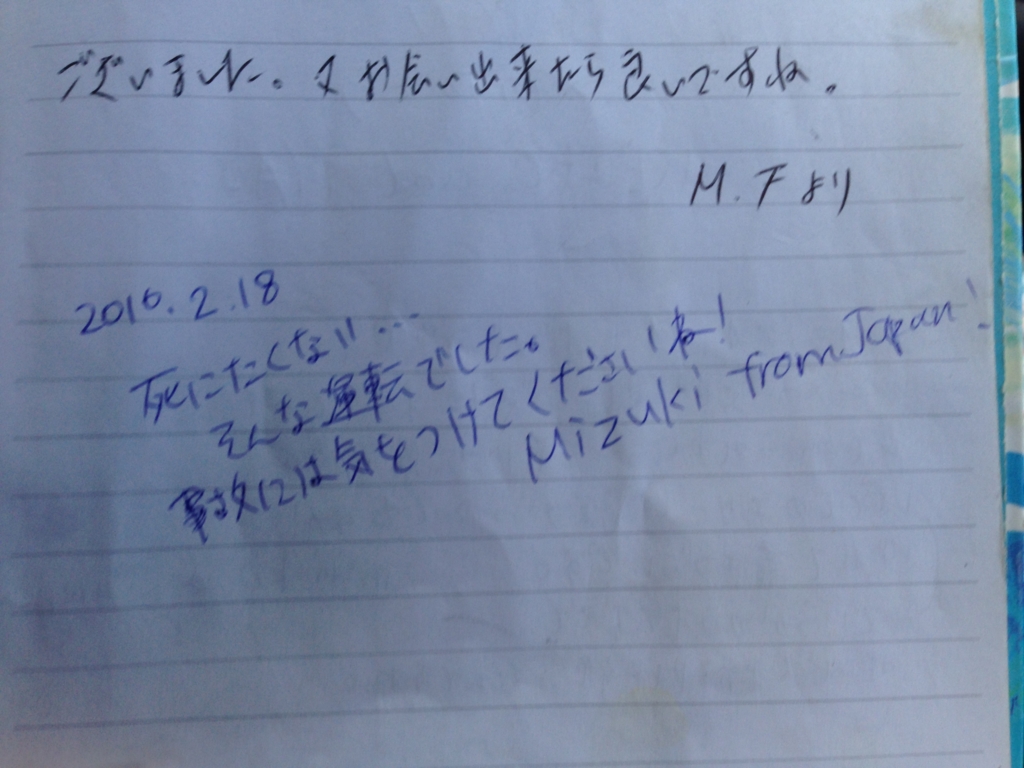 ございました。又お会い出来たら良いですね。
M.Fより
2016.2.18
死にたくない…
そんな運転でした。
事故には気をつけてくださいね!
Mizuki from Japan!